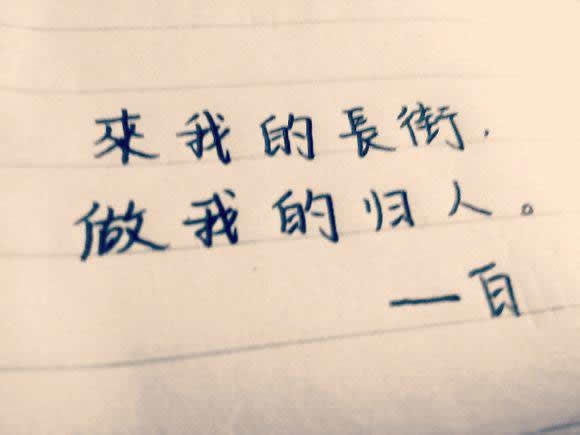 來我的長街,
做我的归人。
——百